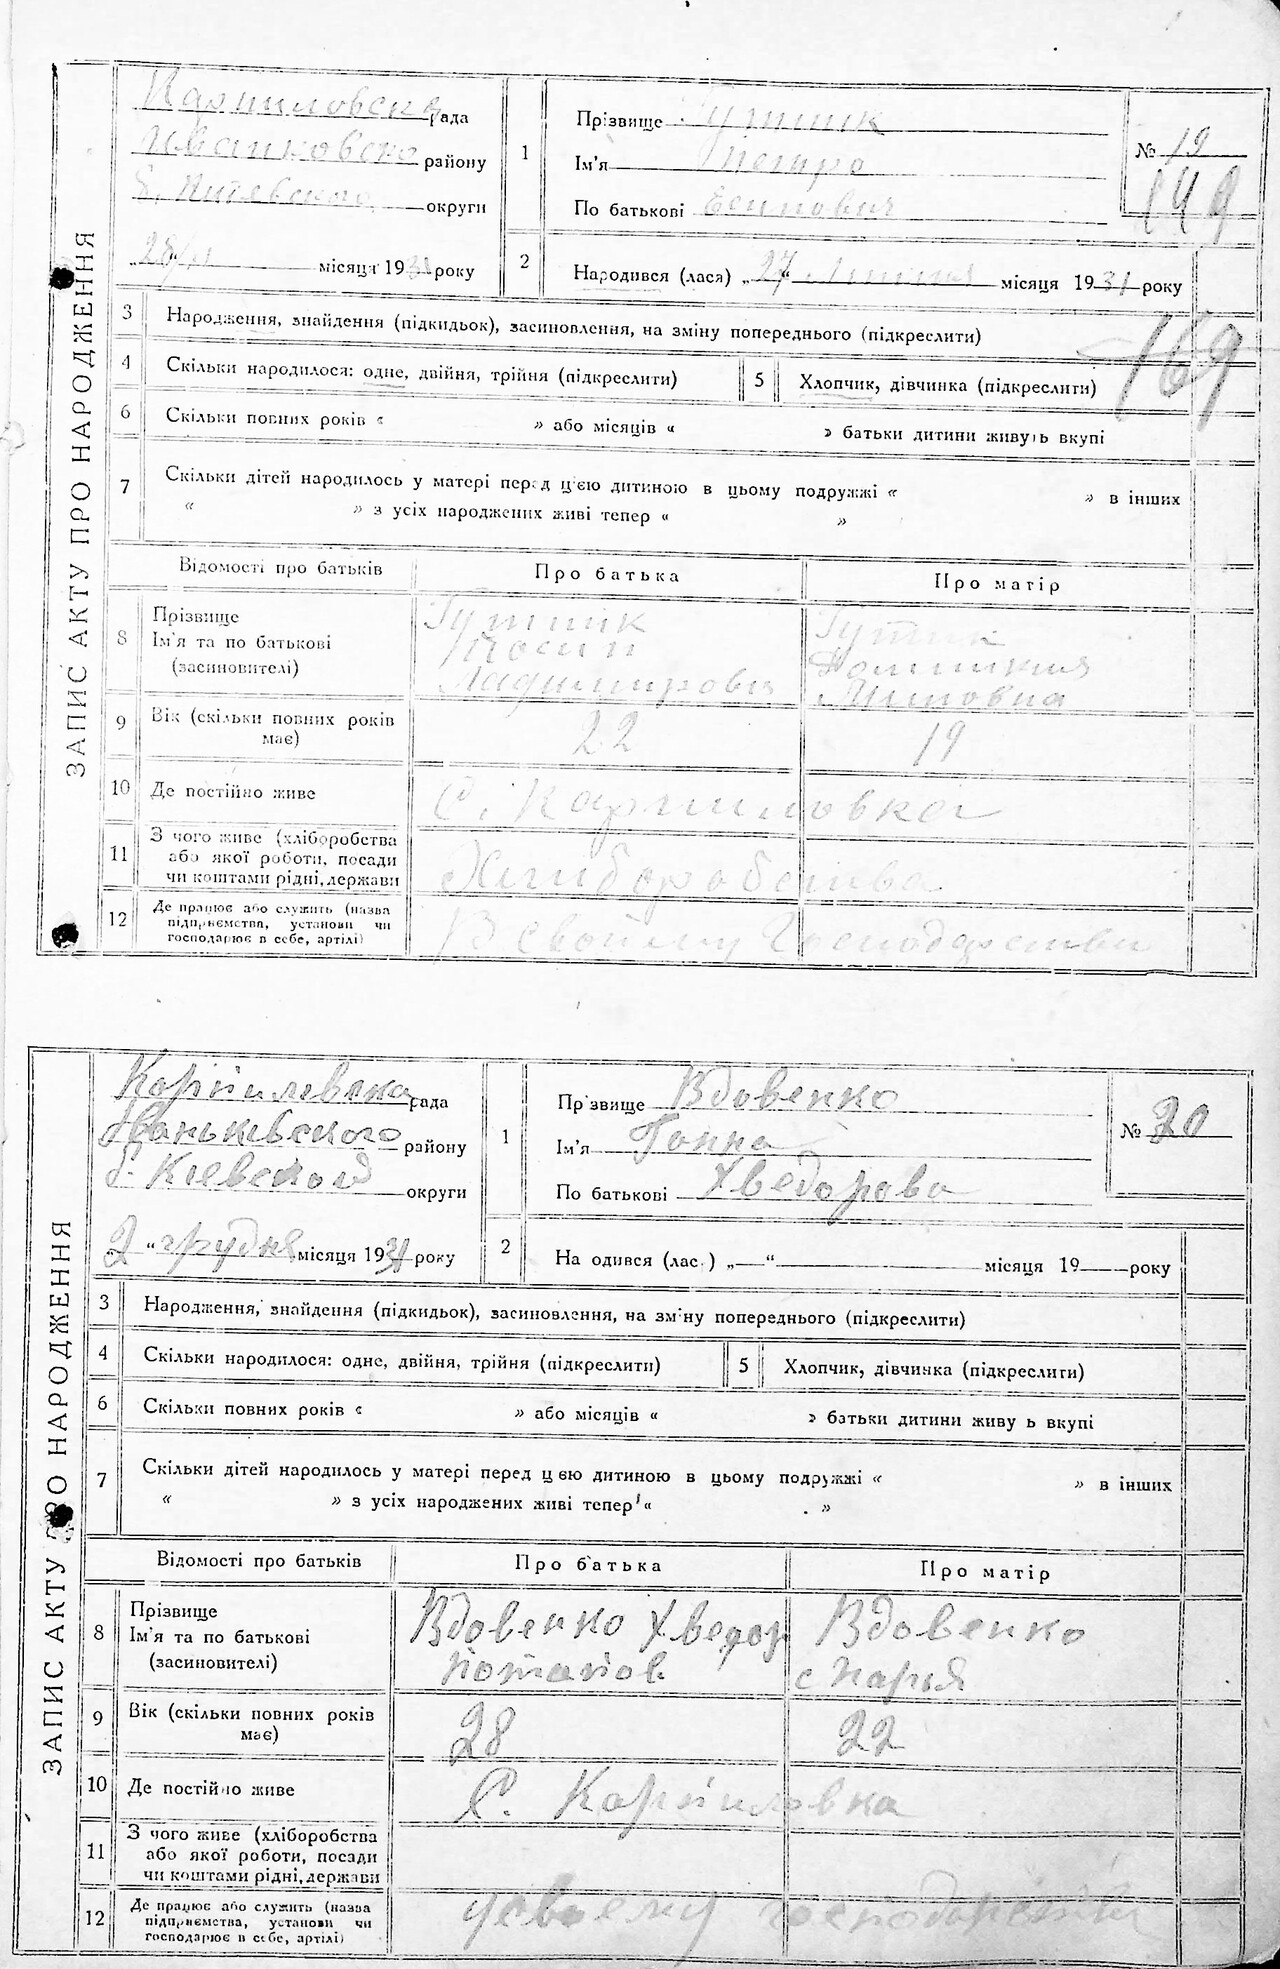 ЗАПИС АКТУ ПРО НАРОДЖЕННЯ
Карпиловска рада
Иванковского району
б. Киевского округи
28/XI місяця 1931 року
1
Прізвище Гутник
Ім'я Петро
По батькові Есипович
№ 19
149
2
Народився (лася) „27 місяця 1931 року
169
3 Народження, знайдення (підкидьок), засиновлення, на зміну попереднього (підкреслити)
4 Скільки народилося: одне, двійня, трійня (підкреслити) 5 Хлопчик, дівчинка (підкреслити)
6 Скільки повних років « » або місяців « » батьки дитини живуть вкупі
7 Скільки дітей народилось у матері перед цією дитиною в цьому подружжі « » в інших
« » з усіх народжених живі тепер « »
Відомості про батьків Про батька Про матір
8 Прізвище
Ім'я та по батькові
(засиновителі)
Гутник
Йосип
Гутник
9 Вік (скільки повних років має) 22 19
10 Де постійно живе С. Карпиловка
11 З чого живе (хліборобства
або якої роботи, посади
чи коштами рідні, держави
Хлиборобства
12 Де працює або служить (назва
підприємства, установи чи
господарює в себе, артілі)
В свойому господарстви
ЗАПИС АКТУ ПРО НАРОДЖЕННЯ
Карпилевска рада
Иваньківского району
б. Киевской округи
2 „ грудня місяця 1931 року
1
Пр звище Вдовенко
Ім'я Ганна
По батькові Хведорова
№ 20
2
На одився (лас ) „—“ місяця 19 року
3 Народження, знайдення (підкидьок), засиновлення, на зміну попереднього (підкреслити)
4 Скільки народилося: одне, двійня, трійня (підкреслити) 5 Хлопчик, дівчинка (підкреслити)
6 Скільки повних років « » або місяців « » батьки дитини живу ь вкупі
7 Скільки дітей народилось у матері перед цею дитиною в цьому подружжі « » в інших
« » з усіх народжених живі тепер « »
Відомості про батьків Про батька Про матір
8 Прізвище
Ім'я та по батькові
(засиновителі)
Вдовенко Хведор
Потапов.
Вдовенко
Марья
9 Вік (скільки повних років має) 28 22
10 Де постійно живе С. Карпиловка
11 З чого живе (хліборобства
або якої роботи, посади
чи коштами рідні, держави
12 Де працює або служить (назва
підприємства, установи чи
господарює в себе, артілі)
усвоему господарстви